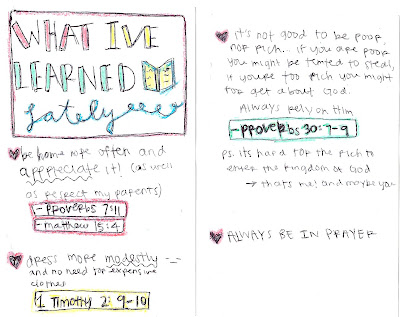 WHAT I'VE
LEARNED
lately
be home more often and
appreciate it! (as well
as respect my parents)
- Proverbs 7:11
- matthew 15:4
dress more modestly -_-
and no need for expensive
clothes
1 Timothy 2: 9-10
it's not good to be poor
nor rich... if you are poor
you might be tempted to steal,
if you're too rich you might
forget about God.
Always rely on Him
- Proverbs 30:7-9
ps. its hard for the rich to
enter the kingdom of God
→ thats me! and maybe you
ALWAYS BE IN PRAYER